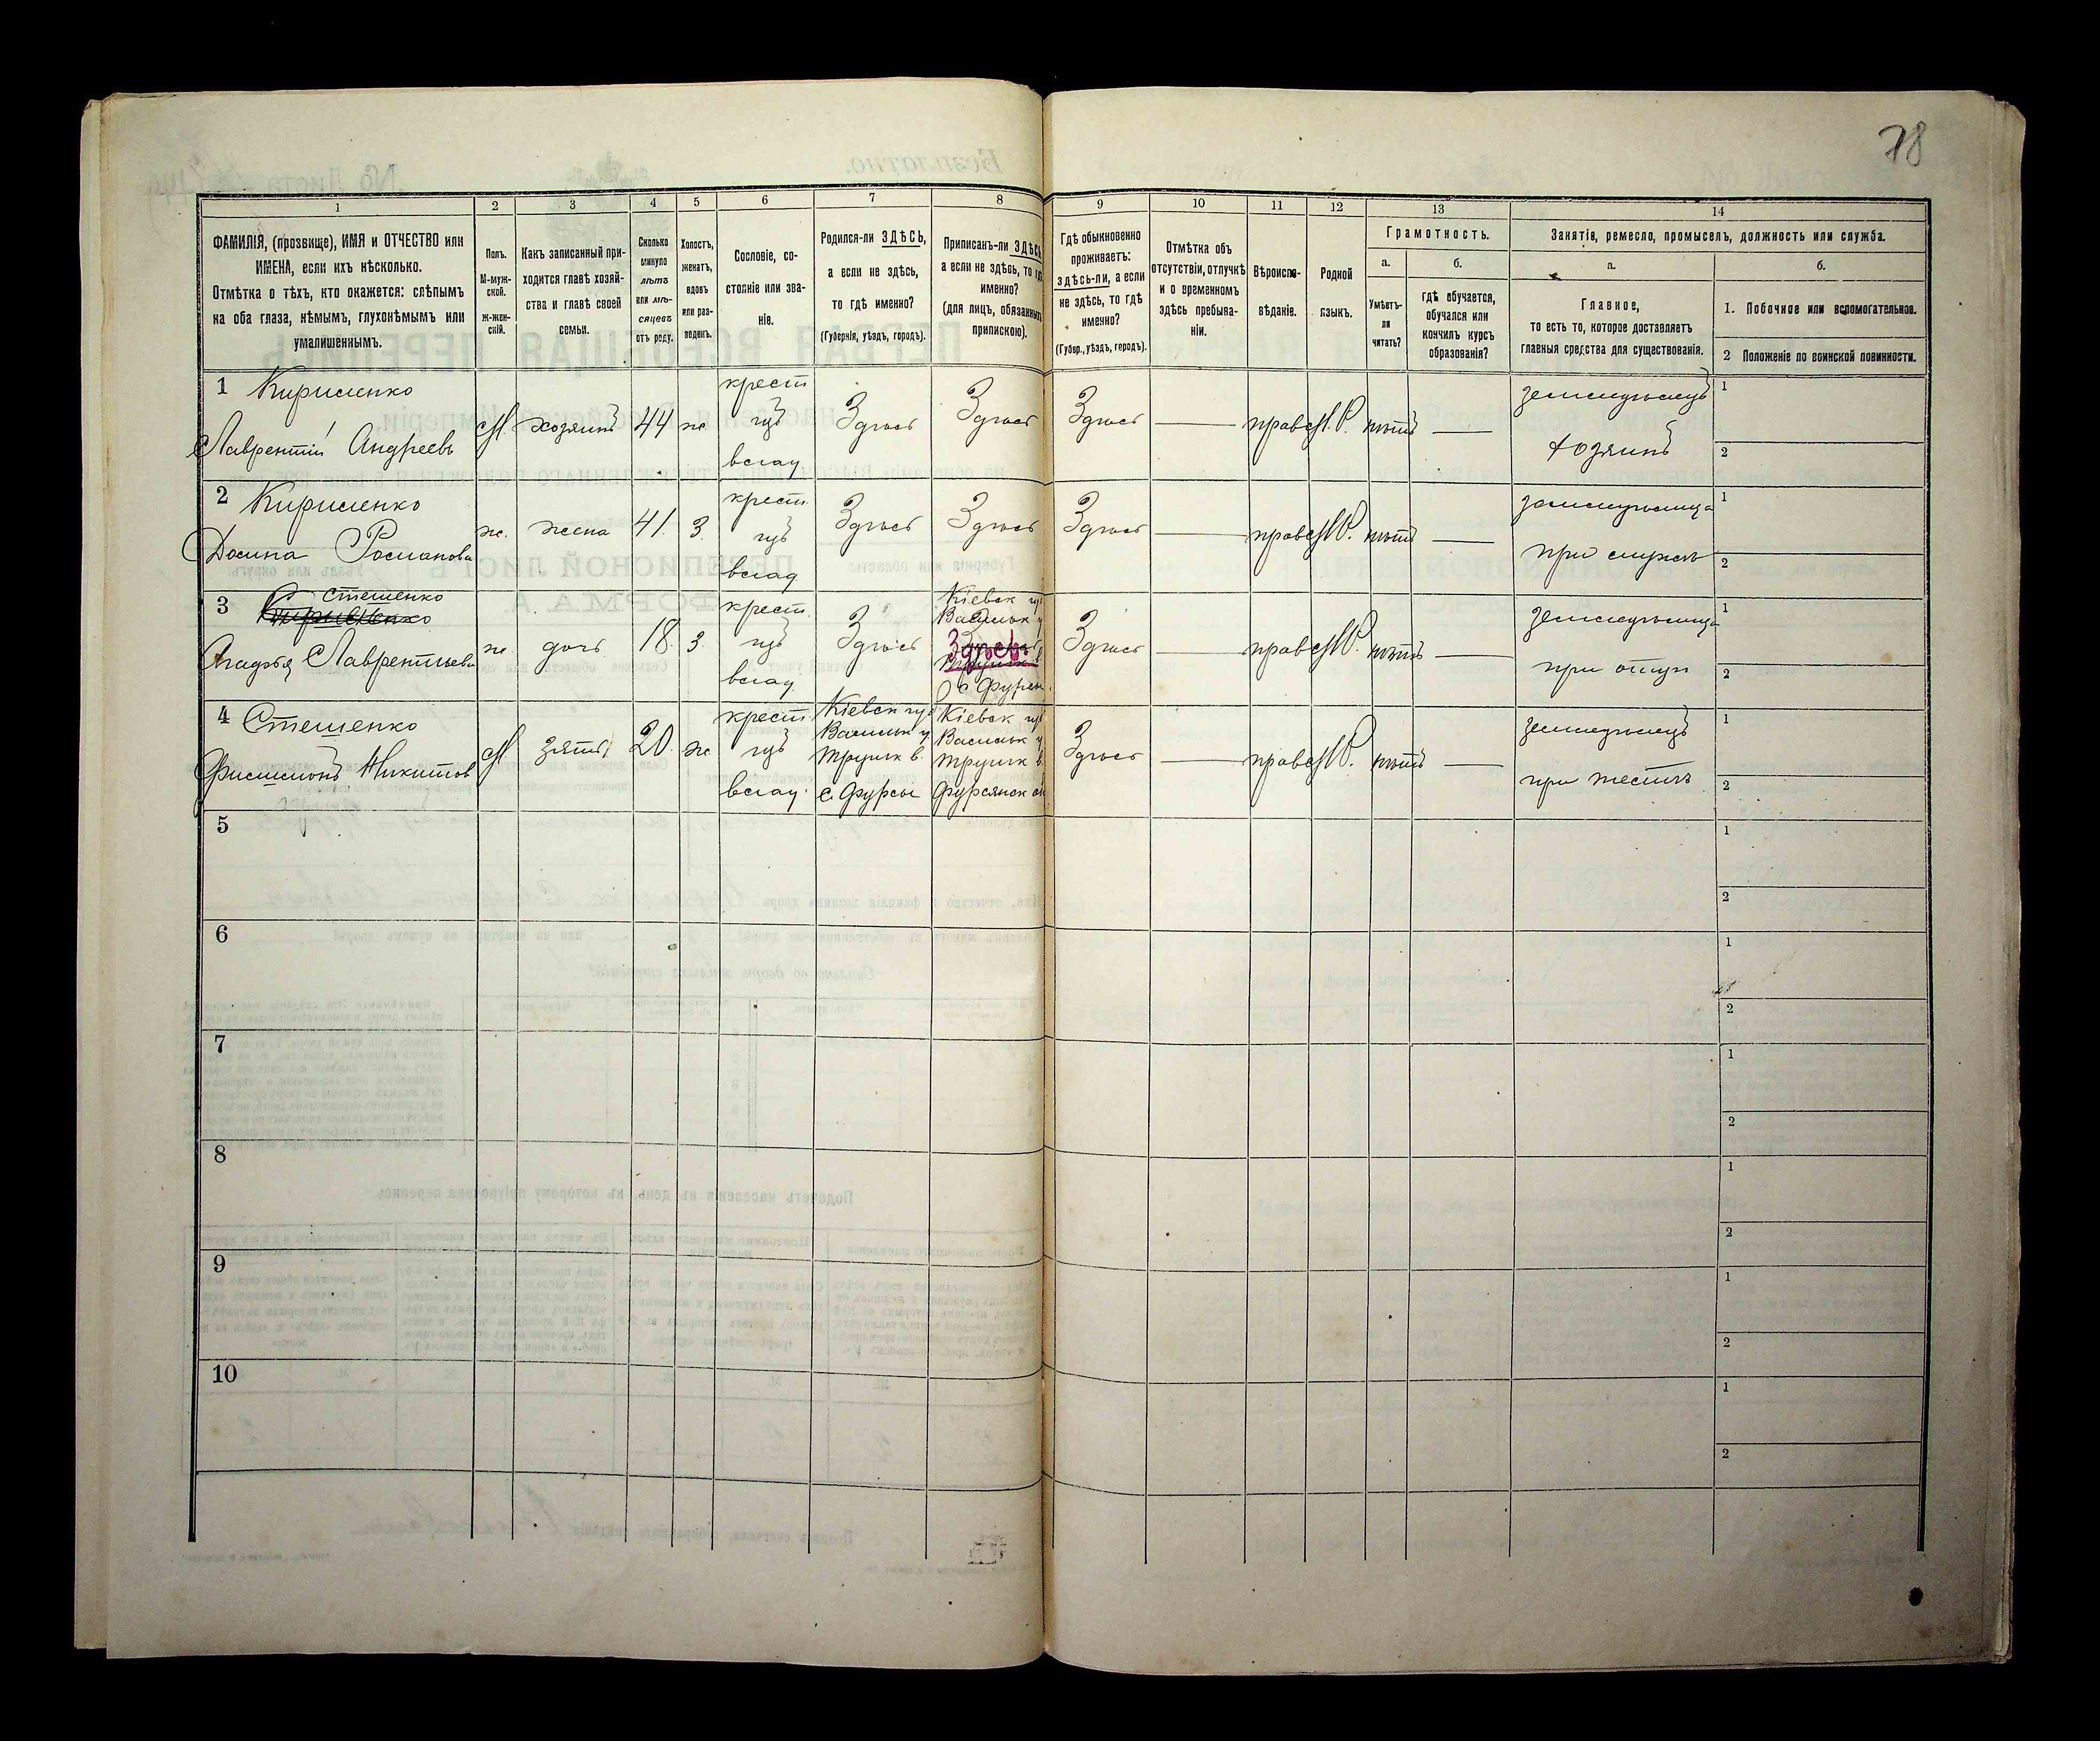 78
1 2 3 4 5 6 7 8 9 10 11 12 13 14
ФАМИЛІЯ, (прозвище), ИМЯ и ОТЧЕСТВО или
ИМЕНА, если ихъ нѣсколько.
Отмѣтка о тѣхъ, кто окажется: слѣпымъ
на оба глаза, нѣмымъ, глухонѣмымъ или
умалишеннымъ.
Полъ.
М-муж-
ской.
ж-жен-
скій.
Какъ записанный при-
ходится главѣ хозяй-
ства и главѣ своей
семьи.
Сколько
минуло
лѣтъ
или мѣ-
сяцевъ
отъ роду.
Холостъ,
женатъ,
вдовъ
или раз-
веденъ.
Сословіе, со-
стояніе или зва-
ніе.
Родился-ли ЗДѢСЬ,
а если не здѣсь,
то гдѣ именно?
(Губернія, уѣздъ, городъ).
Приписанъ-ли ЗДѢСЬ
а если не здѣсь, то гдѣ
именно?
(для лицъ, обязанныхъ
припискою).
Гдѣ обыкновенно
проживаетъ:
здѣсь-ли, а если
не здѣсь, то гдѣ
именно?
(Губер., уѣздъ, городъ).
Отмѣтка объ
отсутствіи, отлучкѣ
и о временномъ
здѣсь пребыва-
ніи.
Вѣроиспо-
вѣданіе.
Родной
языкъ.
Грамотность.
а.
Умѣетъ-
ли
читать?
б.
гдѣ обучается,
обучался или
кончилъ курсъ
образованія?
Занятіе, ремесло, промыселъ, должность или служба.
а.
Главное,
то есть то, которое доставляетъ
главныя средства для существованія.
б.
1. Побочное или вспомогательное.
2 Положеніе по воинской повинности.
1 Кириленко
Лаврентій Андреевъ
М. хозяинъ 44 ж
крест
влад
Здѣсь Здѣсь Здѣсь — правс М.Р. нѣтъ —
земледѣлецъ
хозяинъ
1
2
2 Кириленко
Домна Романова
ж. жена 41. З.
крест
влад
Здѣсь Здѣсь Здѣсь — правс М.Р. нѣтъ —
земледѣлица
при мужѣ
1
2
3 Стешенко
Кириленко
Агафія Лаврентьева
ж дочь 18. З.
крест
влад
Здѣсь
Кіевск гу
Васильк у
Здѣсь
с Фурсы
Здѣсь — правс М.Р. нѣтъ —
земледѣлица
при отцѣ
1
2
4 Стешенко
Филимонъ Никитовъ
М зять 20. ж
крест
влад.
Кіевск губ
Васильк у
Трушк в.
с. Фурсы
Кіевск гу
Васильк у
Трушк в.
Фурсянск об
Здѣсь — правс М.Р. нѣтъ —
земледѣлецъ
при тестѣ
1
2
5
1
2
6
1
2
7
1
2
8
1
2
9
1
2
10
1
2